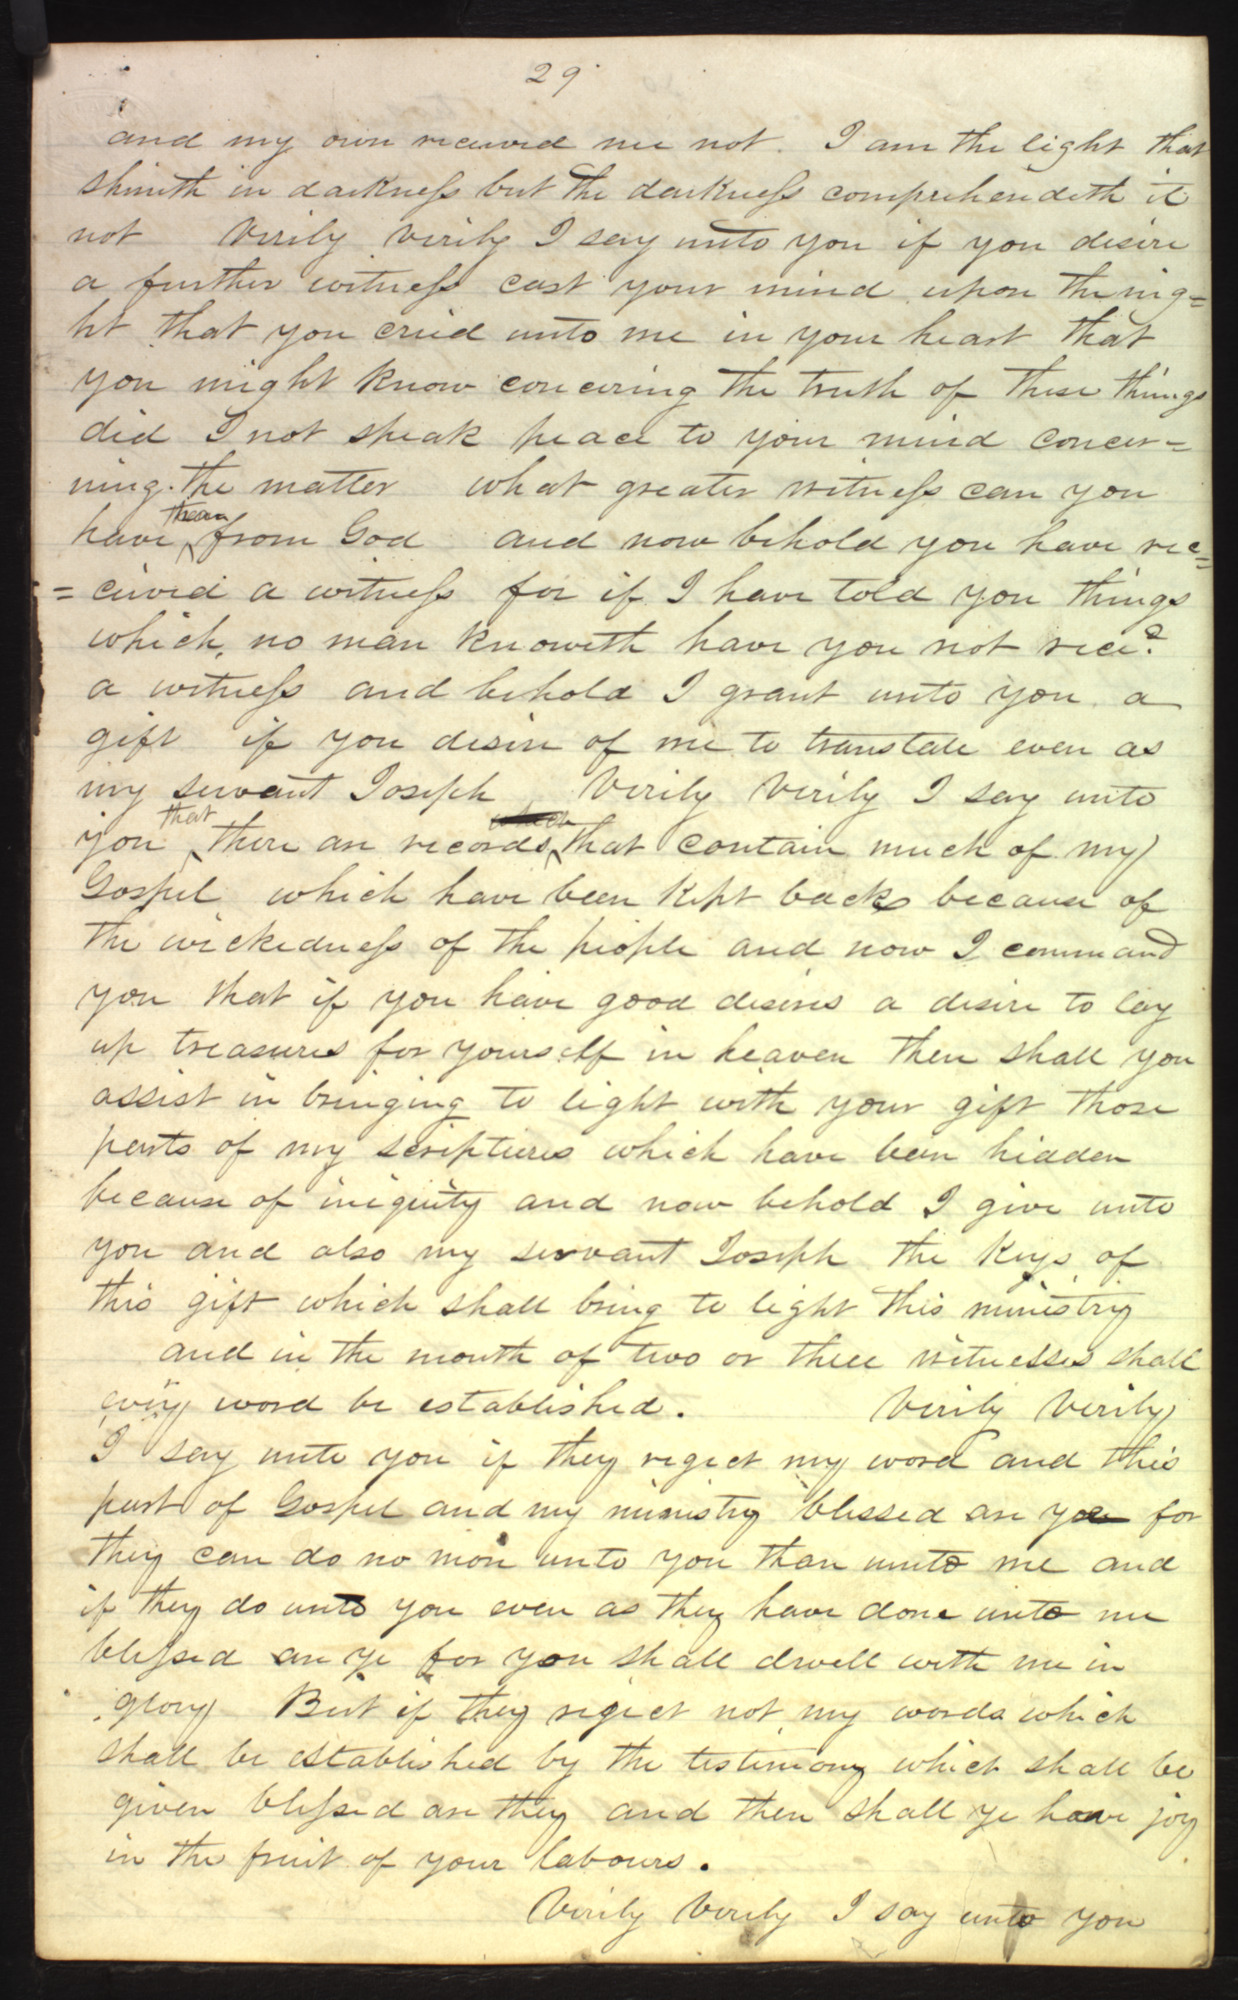 29
and my own received me not. I am the light that
shineth in darkness but the darkness comprehendeth it
not Verily Verily I say unto you if you desire
a further witness cast your mind upon the nig=
ht that you cried unto me in your heart that
you might know concering the truth of these things
did I not speak peace to your mind concer=
ning the matter what greater witness can you
than
have from God and now behold you have rec=
=eived a witness for if I have told you things
which no man knoweth have you not rece?
a witness and behold I grant unto you a
gift if you desire of me to translate even as
my servant Joseph Verily Verily I say unto
that
you there are records that contain much of my
Gospel which have been kept back because of
the wickedness of the people and now I command
you that if you have good desires a desire to lay
up treasures for yourself in heaven then shall you
assist in bringing to light with your gift those
parts of my scriptures which have been hidden
because of iniquity and now behold I give unto
you and also my servant Joseph the Keys of
this gift which shall bring to light this ministry
and in the mouth of two or three witnesses shall
every word be established. Verily Verily
I say unto you if they regect my word and this
part of Gospel and my ministry blessed are ye for
they can do no more unto you than unto me and
if they do unto you even as they have done unto me
blessed are ye for you shall dwell with me in
glory But if they reject not my words which
shall be established by the testimony which shall be
given blessed are they and then shall ye have joy
in the fruit of your labours.
Verily Verily I say unto you